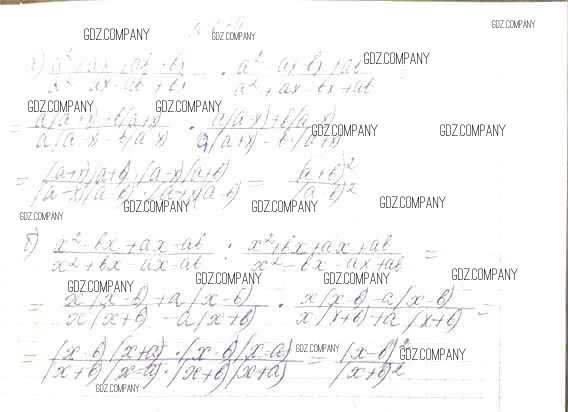 GDZ.COMPANY GDZ.COMPANY GDZ.COMPANY
a² + ax + ab + bx / a² - ax - ab + bx · a² - ax - bx + ab / a² + ax - bx - ab GDZ.COMPANY
GDZ.COMPANY GDZ.COMPANY
= a(a+x) + b(a+x) / a(a-x) - b(a-x) · a(a-x) + b(a-x) / a(a+x) - b(a+x) GDZ.COMPANY GDZ.COMPANY
= (a+x)(a+b) · (a-x)(a+b) / (a-x)(a-b) · (a+x)(a-b) = (a+b)² / (a-b)²
GDZ.COMPANY GDZ.COMPANY GDZ.COMPANY GDZ.COMPANY
б) x² - bx + ax - ab / x² + bx - ax - ab : x² + bx + ax + ab / x² - bx - ax + ab =
GDZ.COMPANY GDZ.COMPANY GDZ.COMPANY GDZ.COMPANY
= x(x-b) + a(x-b) / x(x+b) - a(x+b) · x(x-b) - a(x-b) / x(x+b) + a(x+b) =
= (x-b)(x+a) · (x-b)(x-a) / (x+b)(x-a) · (x+b)(x+a) = (x-b)² / (x+b)²
GDZ.COMPANY GDZ.COMPANY GDZ.COMPANY